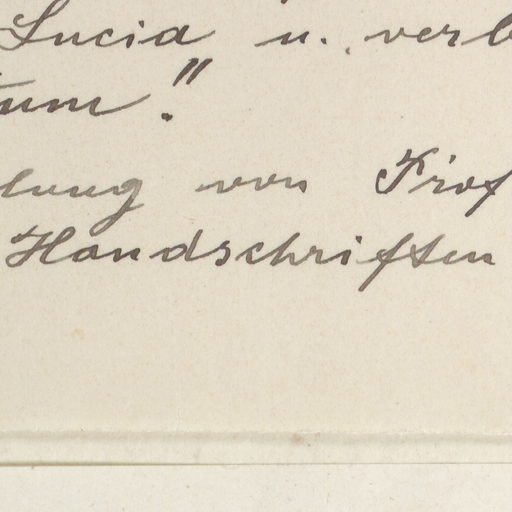 Lucia u. verb
tum."
lung von Prof
Handschriften